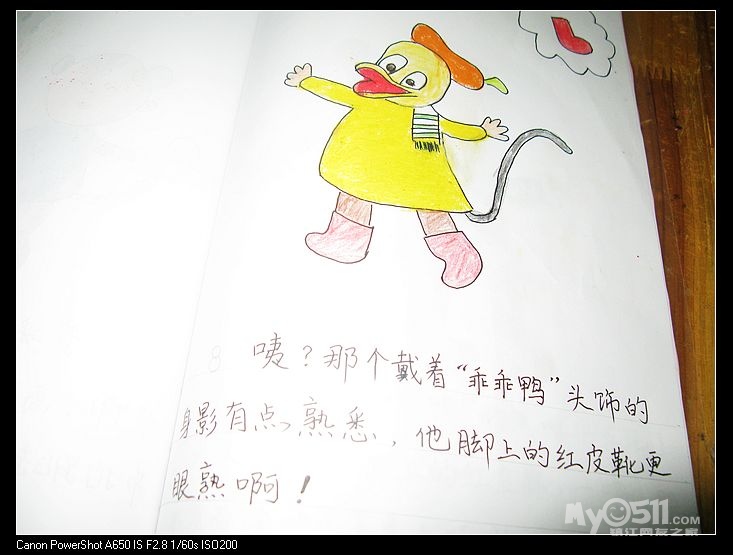 8 咦？那个戴着“乖乖鸭”头饰的
身影有点熟悉，他脚上的红皮靴更
眼熟啊！
My0511.com
镇江网友之家
Canon PowerShot A650 IS F2.8 1/60s ISO200